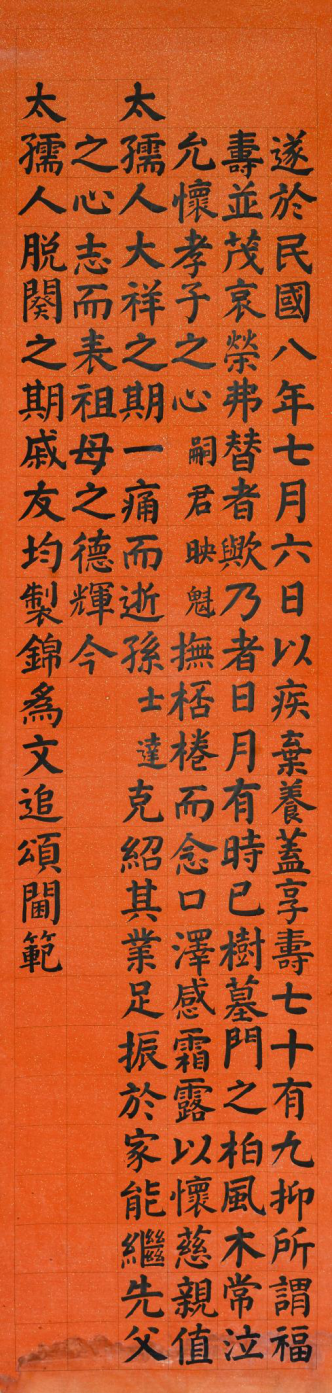 遂於民國八年七月六日以疾棄養蓋享壽七十有九抑所謂福
壽並茂哀榮弗替者歟乃者日月有時已樹墓門之柏風木常泣
允懷孝子之心嗣君映魁撫桮棬而念口澤感霜露以懷慈親值
太孺人大祥之期一痛而逝孫士達克紹其業足振於家能繼先父
之心志而表祖母之德輝今
太孺人脱闋之期戚友均製錦為文追頌閫範